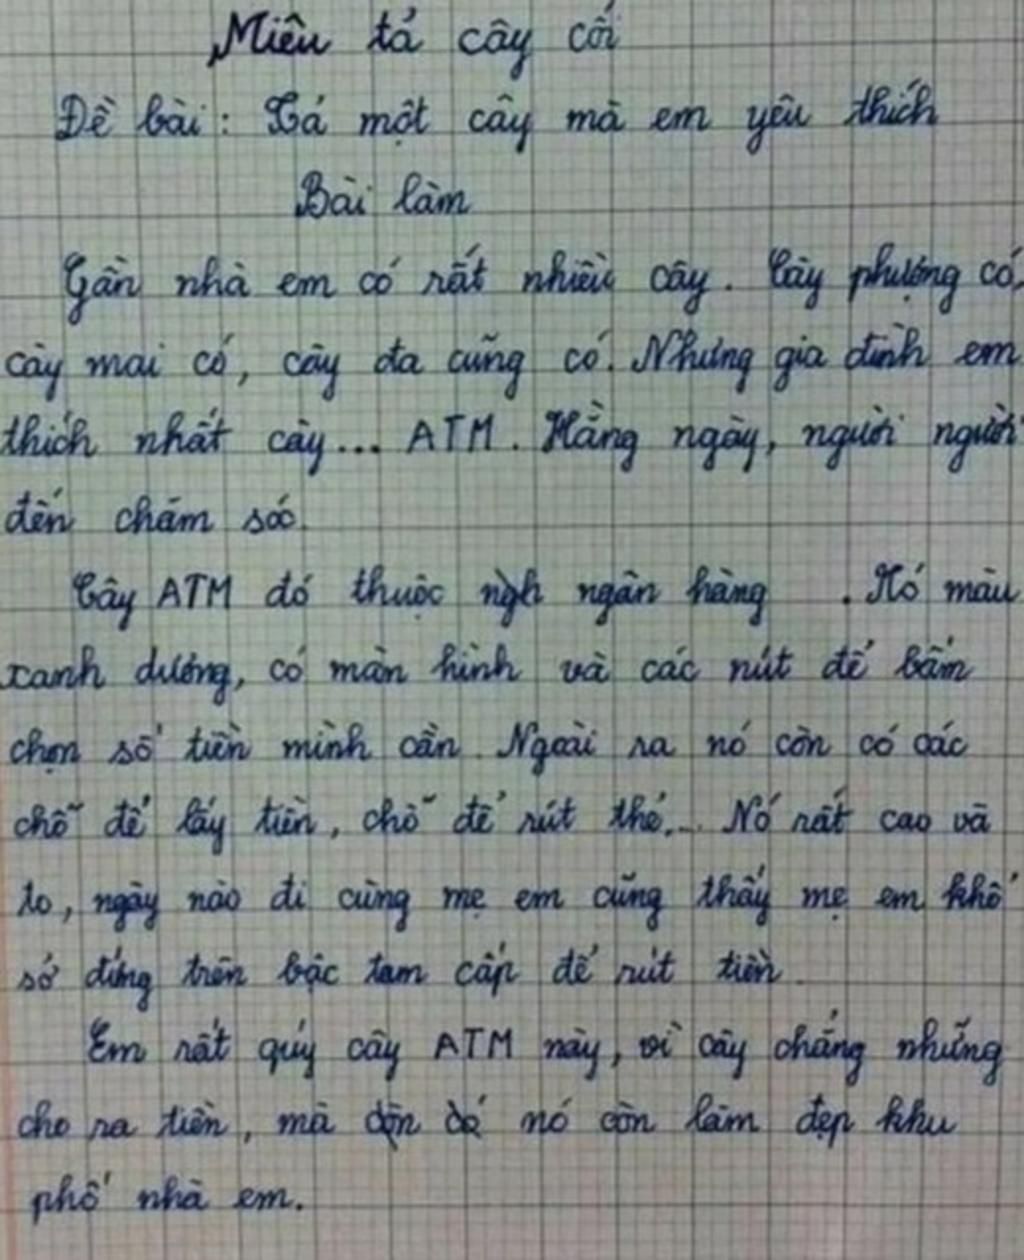 Miêu tả cây cối
Đề bài: Tả một cây mà em yêu thích
Bài làm
Gần nhà em có rất nhiều cây. Cây phượng có,
cây mai có, cây đa cũng có. Nhưng gia đình em
thích nhất cây... ATM. Hằng ngày, người người
đến chăm sóc.
Cây ATM đó thuộc ngh ngân hàng . Nó màu
xanh dương, có màn hình và các nút để bấm
chọn số tiền mình cần. Ngoài ra nó còn có các
chỗ để lấy tiền, chỗ để rút thẻ,... Nó rất cao và
to, ngày nào đi cùng mẹ em cũng thấy mẹ em khổ
sở đứng trên bậc tam cấp để rút tiền.
Em rất quý cây ATM này, vì cây chẳng những
cho ra tiền, mà nó còn làm đẹp khu
phố nhà em.